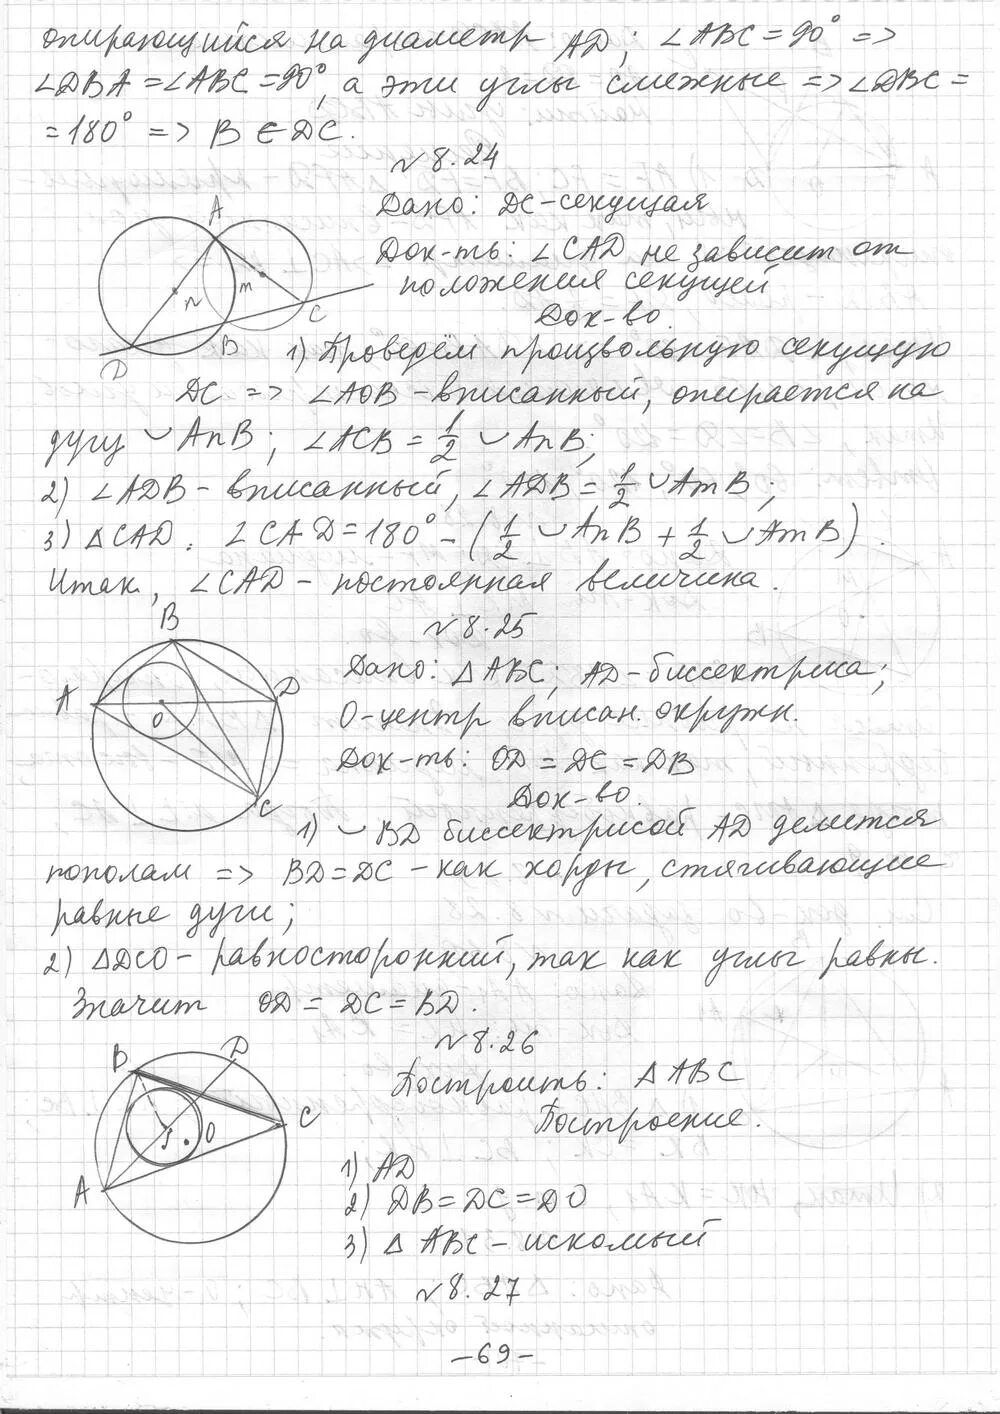 опирающийся на диаметр AD; ∠ABC = 90° =>
∠DBA = ∠ABC = 90°, а эти углы смежные => ∠DBC =
= 180° => B ∈ DC.
№ 8.24
Дано: DC - секущая
Док-ть: ∠CAD не зависит от
положения секущей
Док-во.
A
n
m
C
D
B
1) Проведём произвольную секущую
DC => ∠AOB - вписанный, опирается на
дугу ◡ AnB; ∠ACB = 1/2 ◡ AnB;
2) ∠ADB - вписанный, ∠ADB = 1/2 ◡ AmB;
3) △CAD: ∠CAD = 180° - (1/2 ◡ AnB + 1/2 ◡ AmB).
Итак, ∠CAD - постоянная величина.
№ 8.25
Дано: △ABC; AD - биссектриса;
O - центр вписан. окружн.
Док-ть: OD = DC = DB
Док-во.
B
A
D
O
C
1) ◡ BD биссектрисой AD делится
пополам => BD = DC - как хорды, стягивающие
равные дуги;
2) △DCO - равносторонний, так как углы равны.
Значит OD = DC = BD.
№ 8.26
Построить: △ABC
Построение.
B
D
C
J
O
A
1) AD
2) DB = DC = DO
3) △ ABC - искомый
№ 8.27
- 69 -